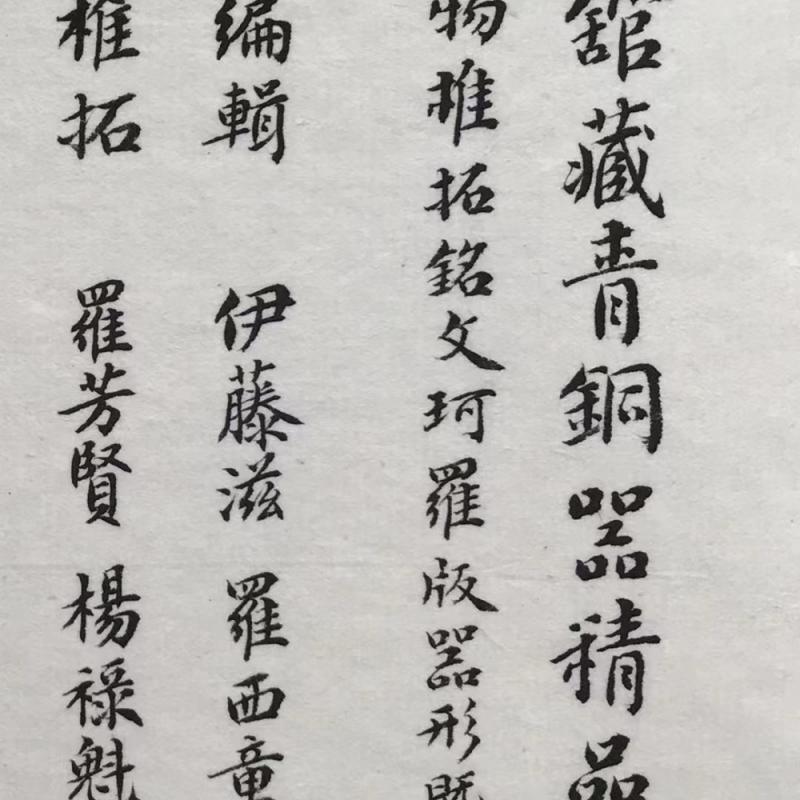 舘藏青銅器精品
物椎拓銘文珂羅版器形既
編輯 伊藤滋 羅西童
椎拓 羅芳賢 楊祿魁